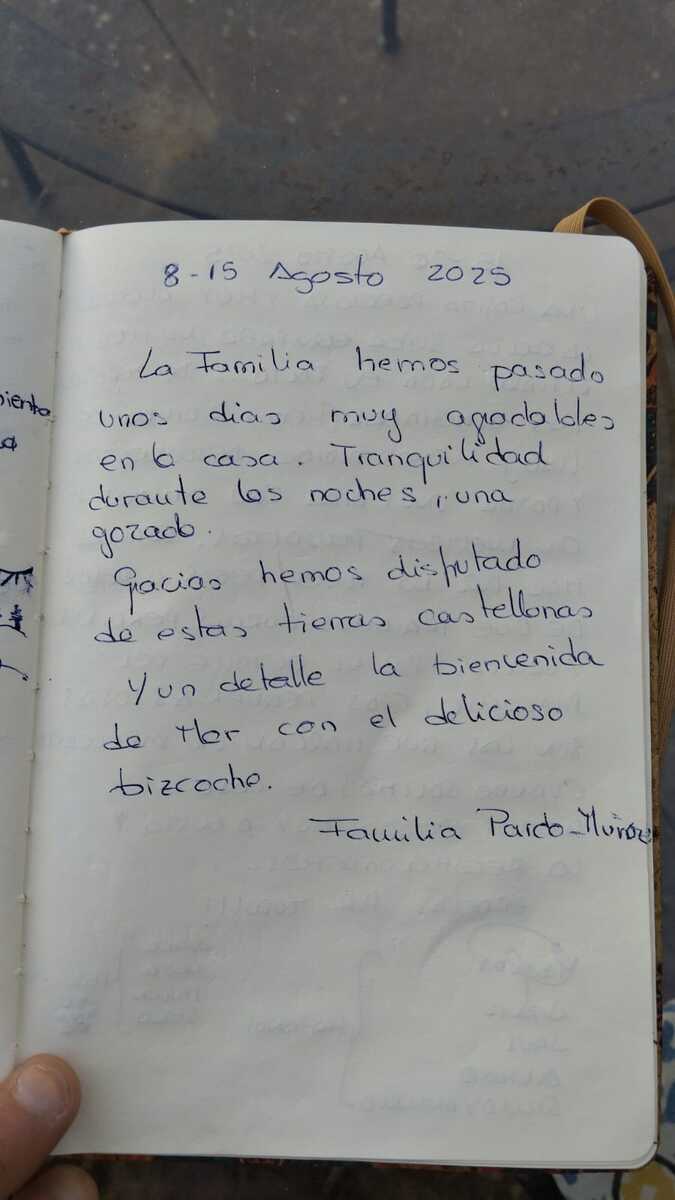 8-15 Agosto 2025
La Familia hemos pasado
unos dias muy agradables
en la casa. Tranquilidad
durante las noches, una
gozada.
Gracias hemos disfrutado
de estas tierras castellanas
Y un detalle la bienvenida
de con el delicioso
bizcocho.
Familia Pardo-Muñoz